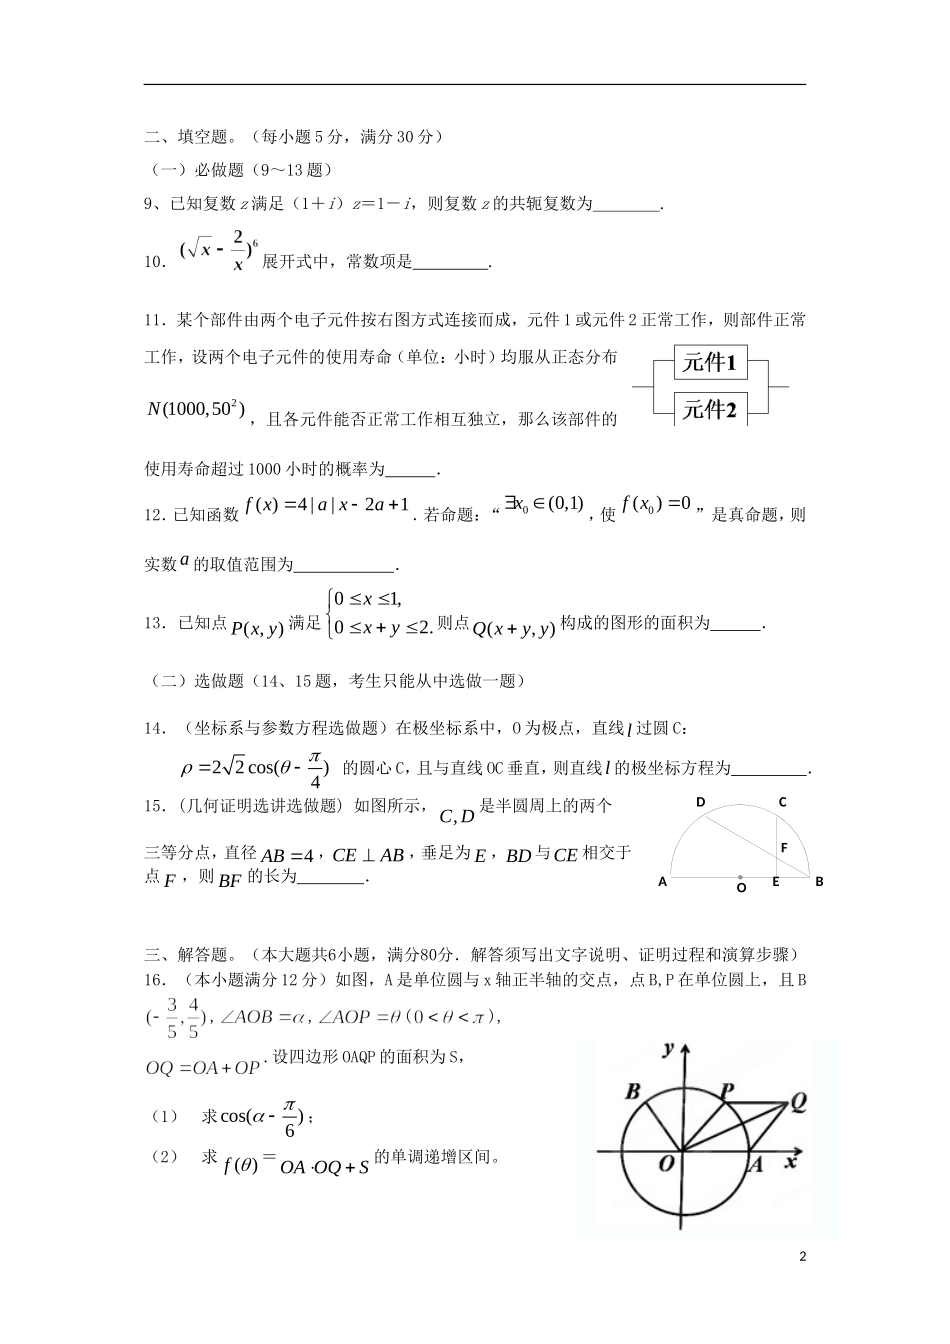 二、填空题。（每小题 5 分，满分 30 分）
（一）必做题（9～13 题）
9、已知复数 z 满足（1＋i）z＝1－i，则复数 z 的共轭复数为________.
10. (√x - 2/x)^6 展开式中，常数项是_________.
11．某个部件由两个电子元件按右图方式连接而成，元件 1 或元件 2 正常工作，则部件正常
工作，设两个电子元件的使用寿命（单位：小时）均服从正态分布
元件1
N(1000,50²)，且各元件能否正常工作相互独立，那么该部件的
元件2
使用寿命超过 1000 小时的概率为______.
12．已知函数 f(x)=4|a|x-2a+1．若命题：“∃x₀∈(0,1)，使 f(x₀)=0”是真命题，则
实数 a 的取值范围为____________.
13．已知点 P(x,y) 满足 {0≤x≤1, 0≤x+y≤2. 则点 Q(x+y,y) 构成的图形的面积为______.
（二）选做题（14、15 题，考生只能从中选做一题）
14．（坐标系与参数方程选做题）在极坐标系中，O 为极点，直线 l 过圆 C：
ρ=2√2cos(θ-π/4) 的圆心 C，且与直线 OC 垂直，则直线 l 的极坐标方程为_________.
15．(几何证明选讲选做题) 如图所示，C,D 是半圆周上的两个
三等分点，直径 AB=4，CE⊥AB，垂足为 E，BD 与 CE 相交于
点 F，则 BF 的长为________.
D C
F
A O E B
三、解答题。（本大题共6小题，满分80分．解答须写出文字说明、证明过程和演算步骤）
16．（本小题满分 12 分）如图，A 是单位圆与 x 轴正半轴的交点，点 B,P 在单位圆上，且 B
(-3/5,4/5)，∠AOB=α，∠AOP=θ(0<θ<π)，
OQ=OA+OP．设四边形 OAQP 的面积为 S，
（1） 求 cos(α-π/6)；
（2） 求 f(θ)＝OA·OQ+S 的单调递增区间。
y
B P Q
O A x
2